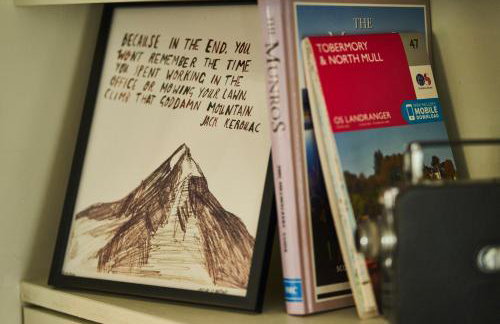 BECAUSE IN THE END, YOU
WON'T REMEMBER THE TIME
YOU SPENT WORKING IN THE
OFFICE OR MOWING YOUR LAWN.
CLIMB THAT GODDAMN MOUNTAIN.
JACK KEROUAC
THE MUNROS
THE
TOBERMORY
& NORTH MULL
47
OS
OS LANDRANGER
MOBILE
DOWNLOAD